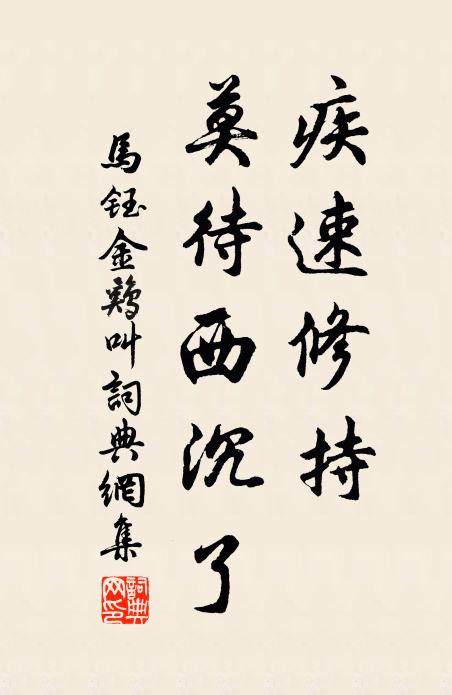 疾速修持
莫待西沉了
馬鈺金鷄叫詞典網集
詞典网印